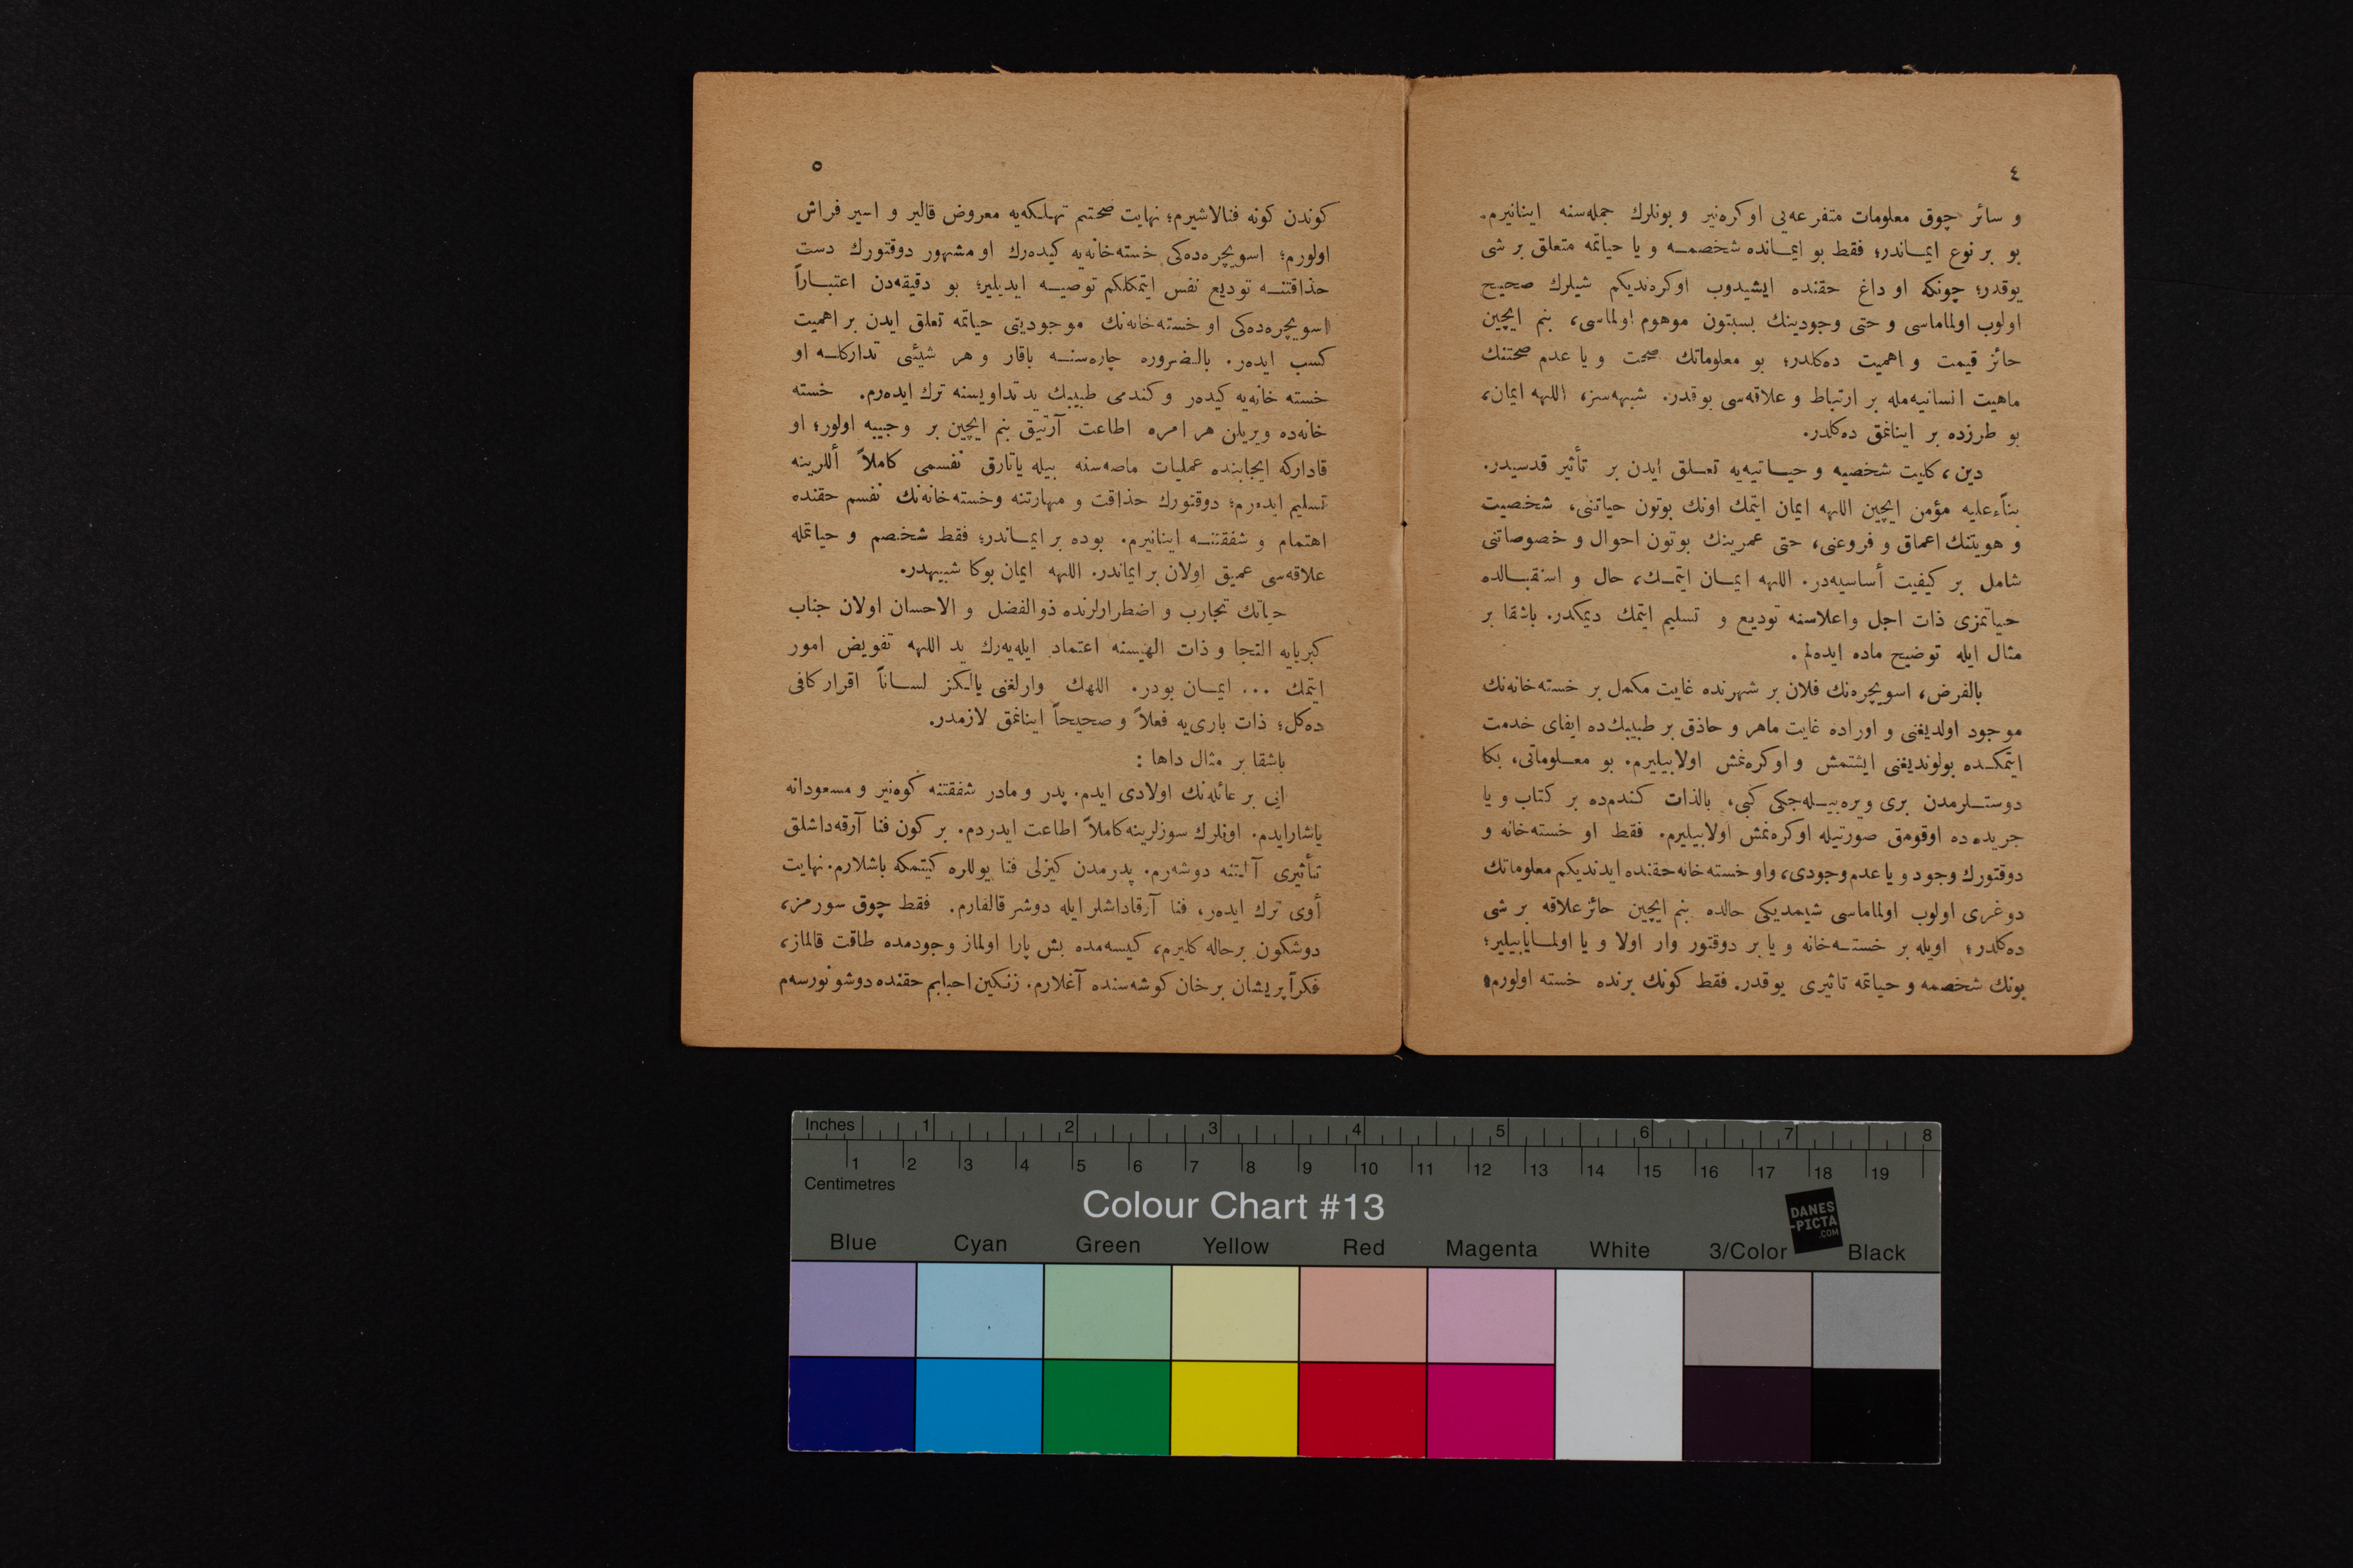 ٤
و سائر چوق معلومات متفرعه‌یی اوكره‌نیر و بونلرك جمله‌سنه اینانیرم.
بو بر نوع ایمـاندر؛ فقط بو ایمـانده شخصمـه و یا حیاتمه متعلق بر شی
یوقدر؛ چونكه او داغ حقنده ایشیدوب اوكره‌ندیكم شیلرك صحیح
اولوب اولماماسی و حتی وجودینك بسبتون موهوم اولماسی، بنم ایچین
حائز قیمت و اهمیت ده‌كلدر؛ بو معلوماتك صحت و یا عدم صحتنك
ماهیت انسانیه‌مله بر ارتباط و علاقه‌سی یوقدر. شبهه‌سز، اللهه ایمان،
بو طرزده بر اینانمق ده‌كلدر.
دین، كلیت شخصیه و حیـاتیه‌یه تعـلق ایدن بر تأثیر قدسیدر.
بناءً علیه مؤمن ایچین اللهه ایمان ایتمك اونك بوتون حیاتنی، شخصیت
و هویتنك اعماق و فروعنی، حتی عمرینك بوتون احوال و خصوصاتنی
شامل بر كیفیت أساسیه‌در. اللهه ایمـان ایتمـك، حال و استقبـالده
حیاتمزی ذات اجل واعلاسنه تودیع و تسلیم ایتمك دیمكدر. باشقا بر
مثال ایله توضیح ماده ایده‌لم.
بالفرض، اسویچره‌نك فلان بر شهرنده غایت مكمل بر خسته‌خانه‌نك
موجود اولدیغنی و اوراده غایت ماهر و حاذق بر طبیبك‌ده ایفای خدمت
ایتمكـده بولوندیغنی ایشتمش و اوكره‌نمش اولابیلیرم. بو معـلوماتی، بكا
دوستـلرمدن بری ویره‌بیـله‌جكی كبی، بالذات كندم‌ده بر كتاب و یا
جریده‌ده اوقومق صورتیله اوكره‌نمش اولابیلیرم. فقط او خسته‌خانه و
دوقتورك وجود و یا عدم وجودی، واو خسته‌خانه حقنده ایدندیكم معلوماتك
دوغری اولوب اولماماسی شیمدیكی حالده بنم ایچین حائز علاقه بر شی
ده‌كلدر؛ اویله بر خستـه‌خانه و یا بر دوقتور وار اولا و یا اولمـایابیلیر؛
بونك شخصمه و حیاتمه تاثیری یوقدر. فقط كونك برنده خسته اولورم،
٥
كوندن كونه فنالاشیرم؛ نهایت صحتم تهلكه‌یه معروض قالیر و اسیر فراش
اولورم؛ اسویچره‌ده‌كی خسته‌خانه‌یه كیده‌رك او مشهور دوقتورك دست
حذاقتنـه تودیع نفس ایتمكلكم توصیـه ایدیلیر؛ بو دقیقه‌دن اعتبـاراً
اسویچره‌ده‌كی او خسته‌خانه‌نك موجودیتی حیاتمه تعلق ایدن بر اهمیت
كسب ایده‌ر. بالضروره چاره‌سنـه باقار و هر شیئی تداركلـه او
خسته خانه‌یه كیده‌ر و كندمی طبیبك ید تداویسنه ترك ایده‌رم. خسته
خانه‌ده ویریلن هر امره اطاعت آرتیق بنم ایچین بر وجیبه اولور؛ او
قادار كه ایجابنده عملیات ماصه‌سنه بیله یاتارق نفسمی كاملاً أللرینه
تسلیم ایده‌رم؛ دوقتورك حذاقت و مهارتنه وخسته‌خانه‌نك نفسم حقنده
اهتمام و شفقتنـه اینانیرم. بوده بر ایمـاندر؛ فقط شخصم و حیاتمله
علاقه‌سی عمیق اولان بر ایماندر. اللهه ایمان بوكا شبیهدر.
حیاتك تجارب و اضطرارلرنده ذوالفضل و الاحسان اولان جناب
كبریایه التجا و ذات الهیسنه اعتماد ایله‌یه‌رك ید اللهه تفویض امور
ایتمك ... ایمـان بودر. اللهك وارلغنی یالكز لسـاناً اقرار كافی
ده‌كل؛ ذات باری‌یه فعلاً و صحیحاً اینانمق لازمدر.
باشقا بر مثال داها :
ایی بر عائله‌نك اولادی ایدم. پدر و مادر شفقتنه كوه‌نیر و مسعودانه
یاشارایدم. اونلرك سوزلرینه كاملاً اطاعت ایدردم. بر كون فنا آرقه‌داشلق
تأثیری آلتنه دوشه‌رم. پدرمدن كیزلی فنا یوللره كیتمكه باشلارم. نهایت
أوی ترك ایده‌ر، فنا آرقاداشلر ایله دوشر قالقارم. فقط چوق سورمز،
دوشكون برحاله كلیرم، كیسه‌مده بش پارا اولماز وجودمده طاقت قالماز،
فكراً پریشان برخان كوشه‌سنده آغلارم. زنكین احبابم حقنده دوشونورسه‌م
Inches 1 2 3 4 5 6 7 8
1 2 3 4 5 6 7 8 9 10 11 12 13 14 15 16 17 18 19
Centimetres
Colour Chart #13
DANES
-PICTA
.COM
Blue Cyan Green Yellow Red Magenta White 3/Color Black